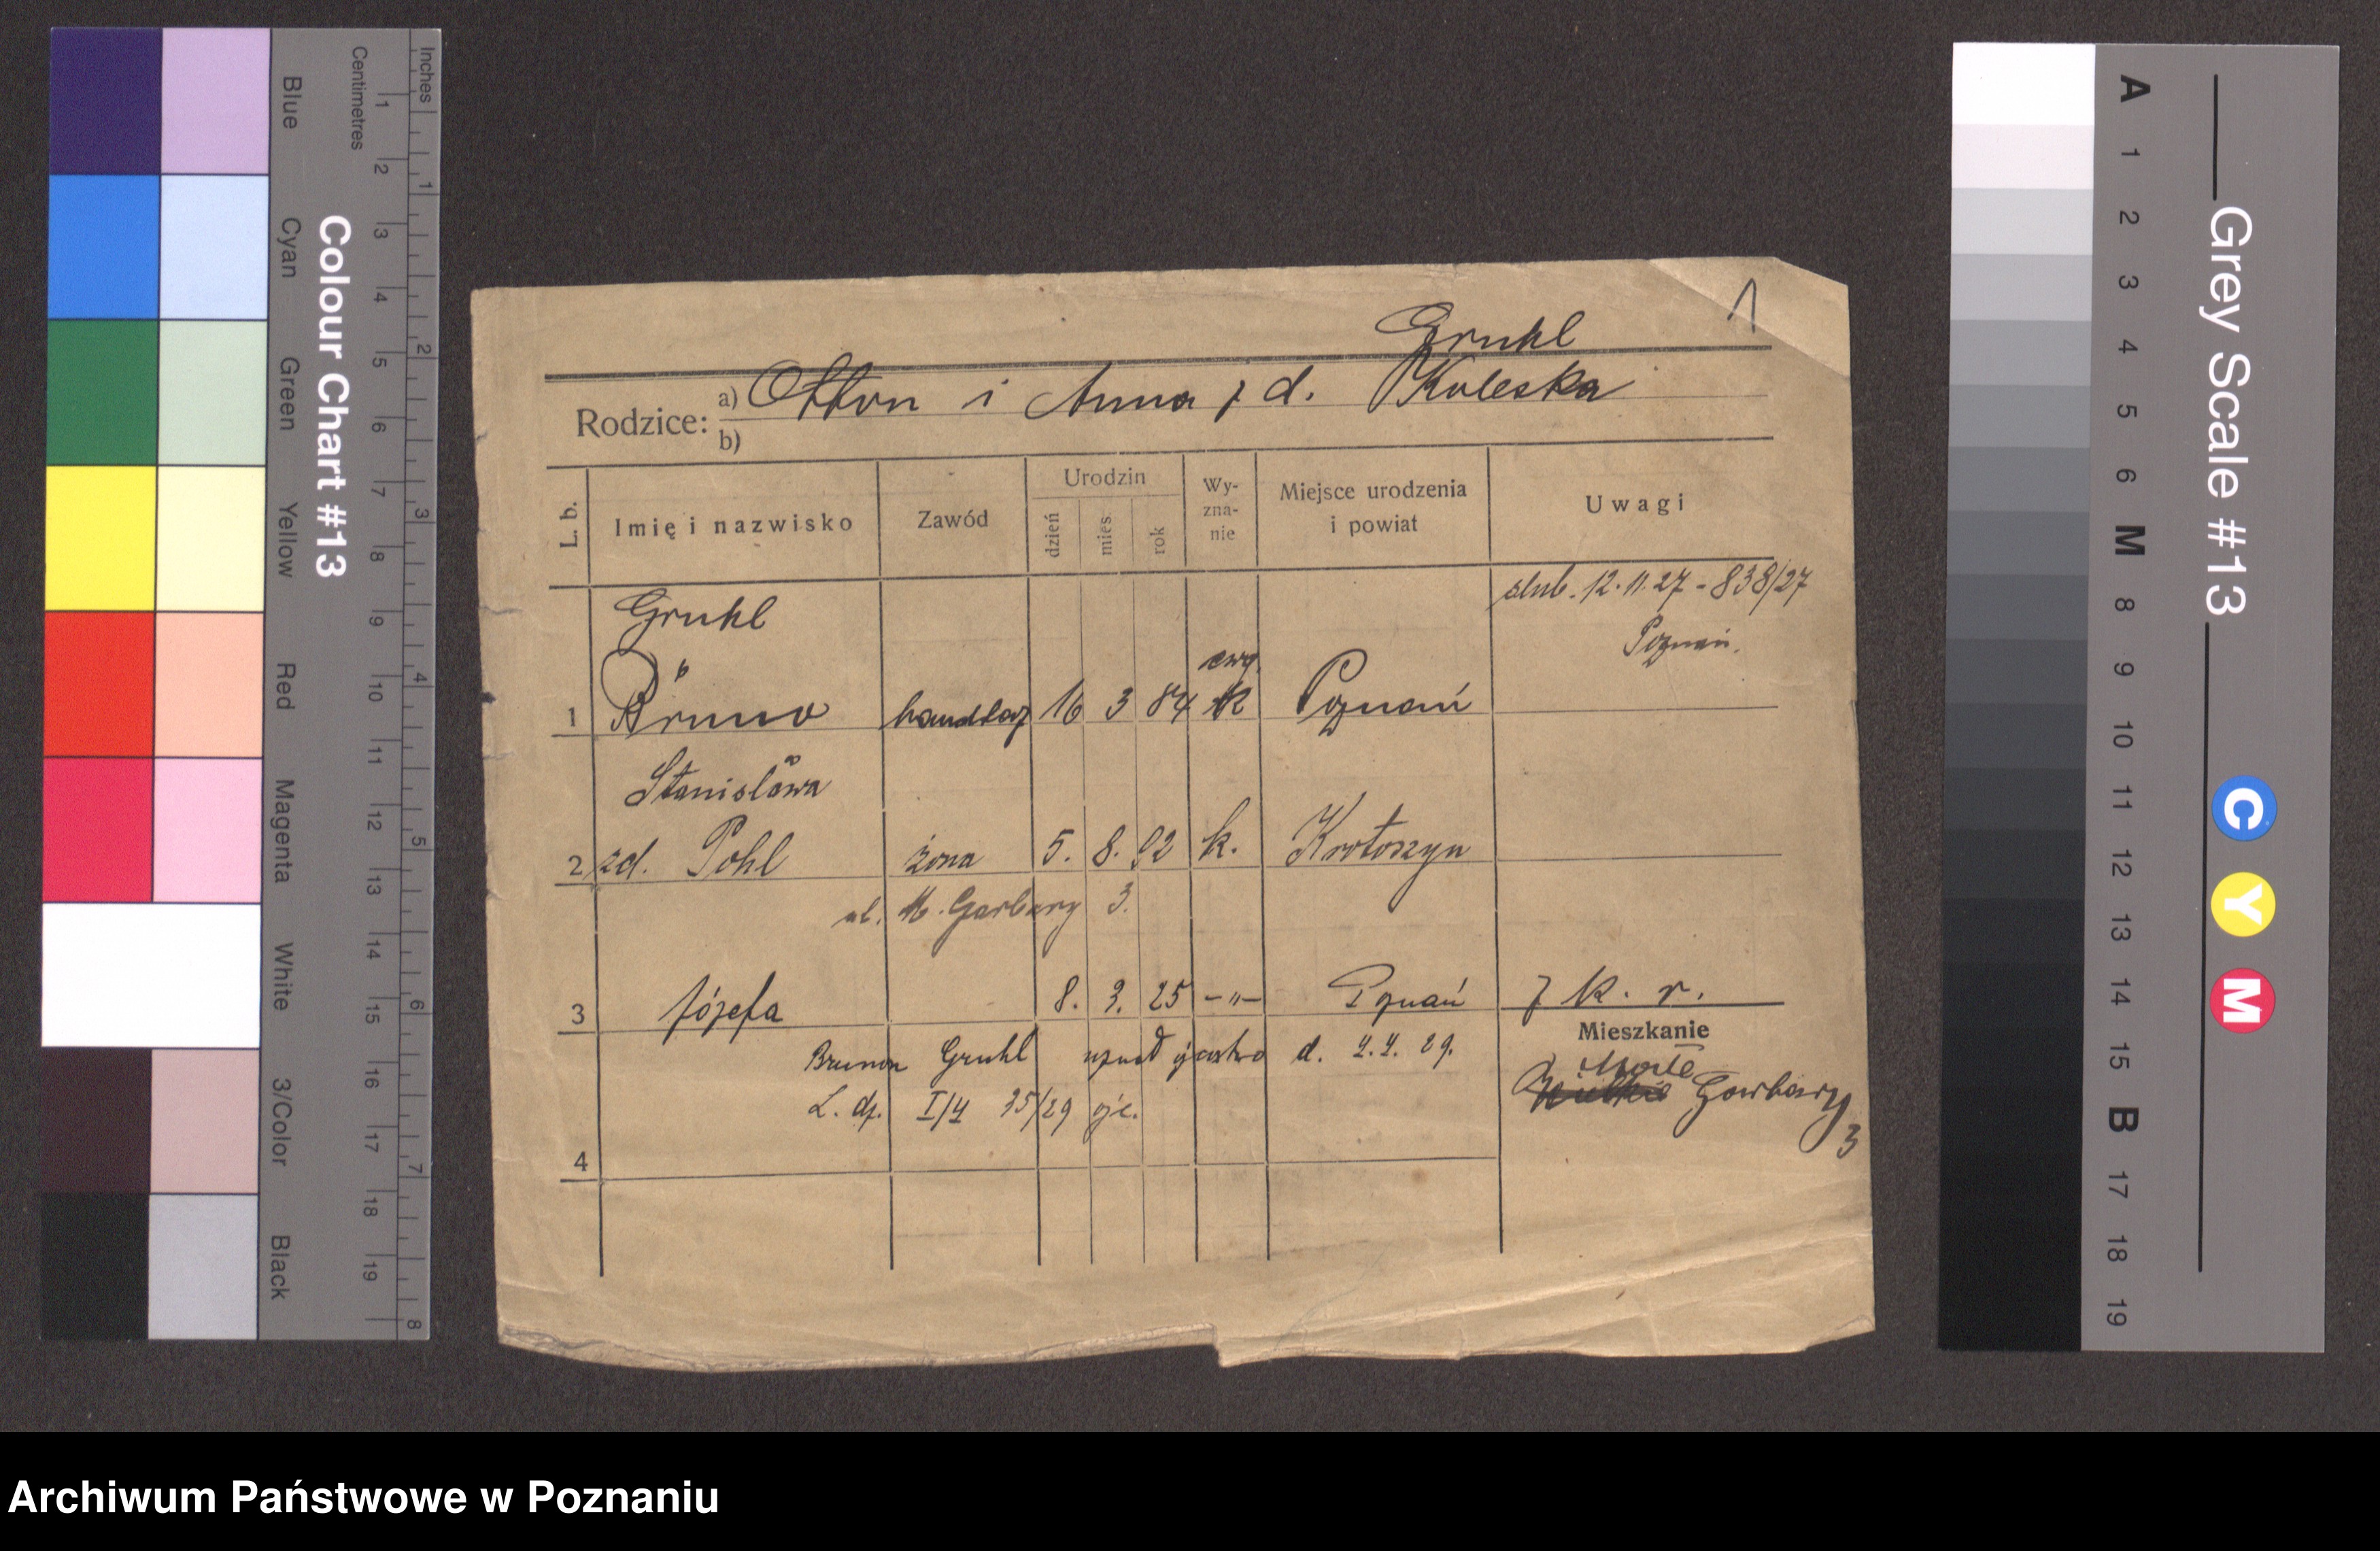 Gruhl
1
Rodzice: a) Otton i Anna z d. Koleska
b)
L. b. Imię i nazwisko Zawód Urodzin dzień mies. rok Wyznanie Miejsce urodzenia i powiat Uwagi
ślub. 12.11.27 - 838/27
Poznań.
Gruhl
ewg.
1 Bruno handlarz 16 3 84 k Poznań
Stanisława
2 zd. Pohl żona 5. 8. 92 k. Krotoszyn
ul. M. Garbary 3.
3 Józefa 8. 3. 25 -"- Poznań z k. r.
Mieszkanie
Brunon Gruhl uznał ojcostwo d. 4.4. 29.
Małe
Wielkie Garbary 3
L. dz. I/4 35/29 ojc.
4
Inches
Centimetres
Colour Chart #13
Blue Cyan Green Yellow Red Magenta White 3/Color Black
1 2 3 4 5 6 7 8 9 10 11 12 13 14 15 16 17 18 19
1 2 3 4 5 6 7 8
Grey Scale #13
A 1 2 3 4 5 6 M 8 9 10 11 12 13 14 15 B 17 18 19
C Y M
Archiwum Państwowe w Poznaniu